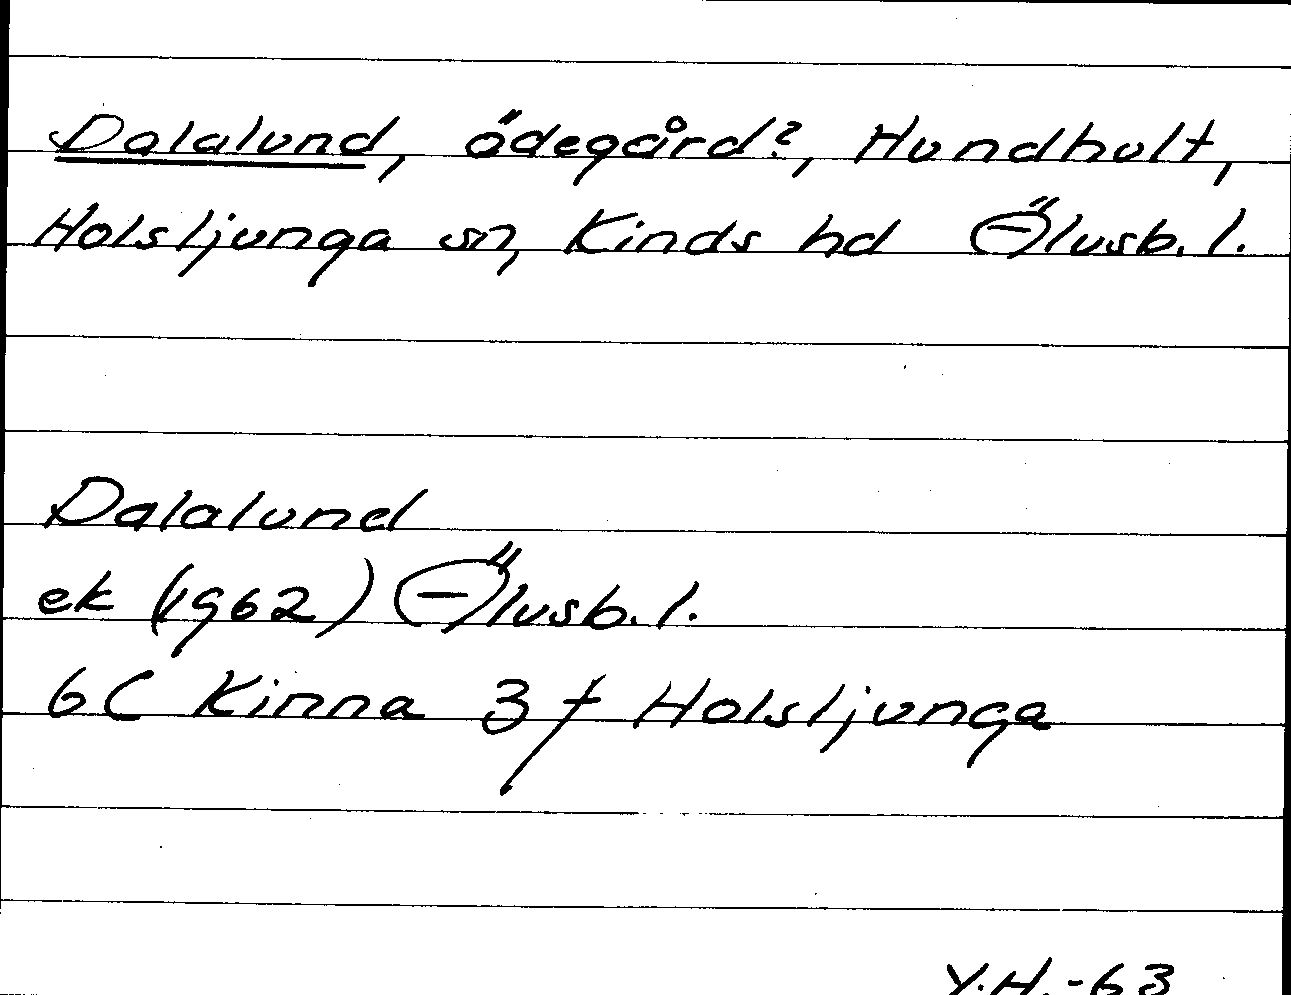 Dalalund, ödegård?, Hundhult,
Holsljunga sn, Kinds hd Älvsb. l.
Dalalund
ek (1962) Älvsb. l.
6C Kinna 3 f Holsljunga
Y.H. -63